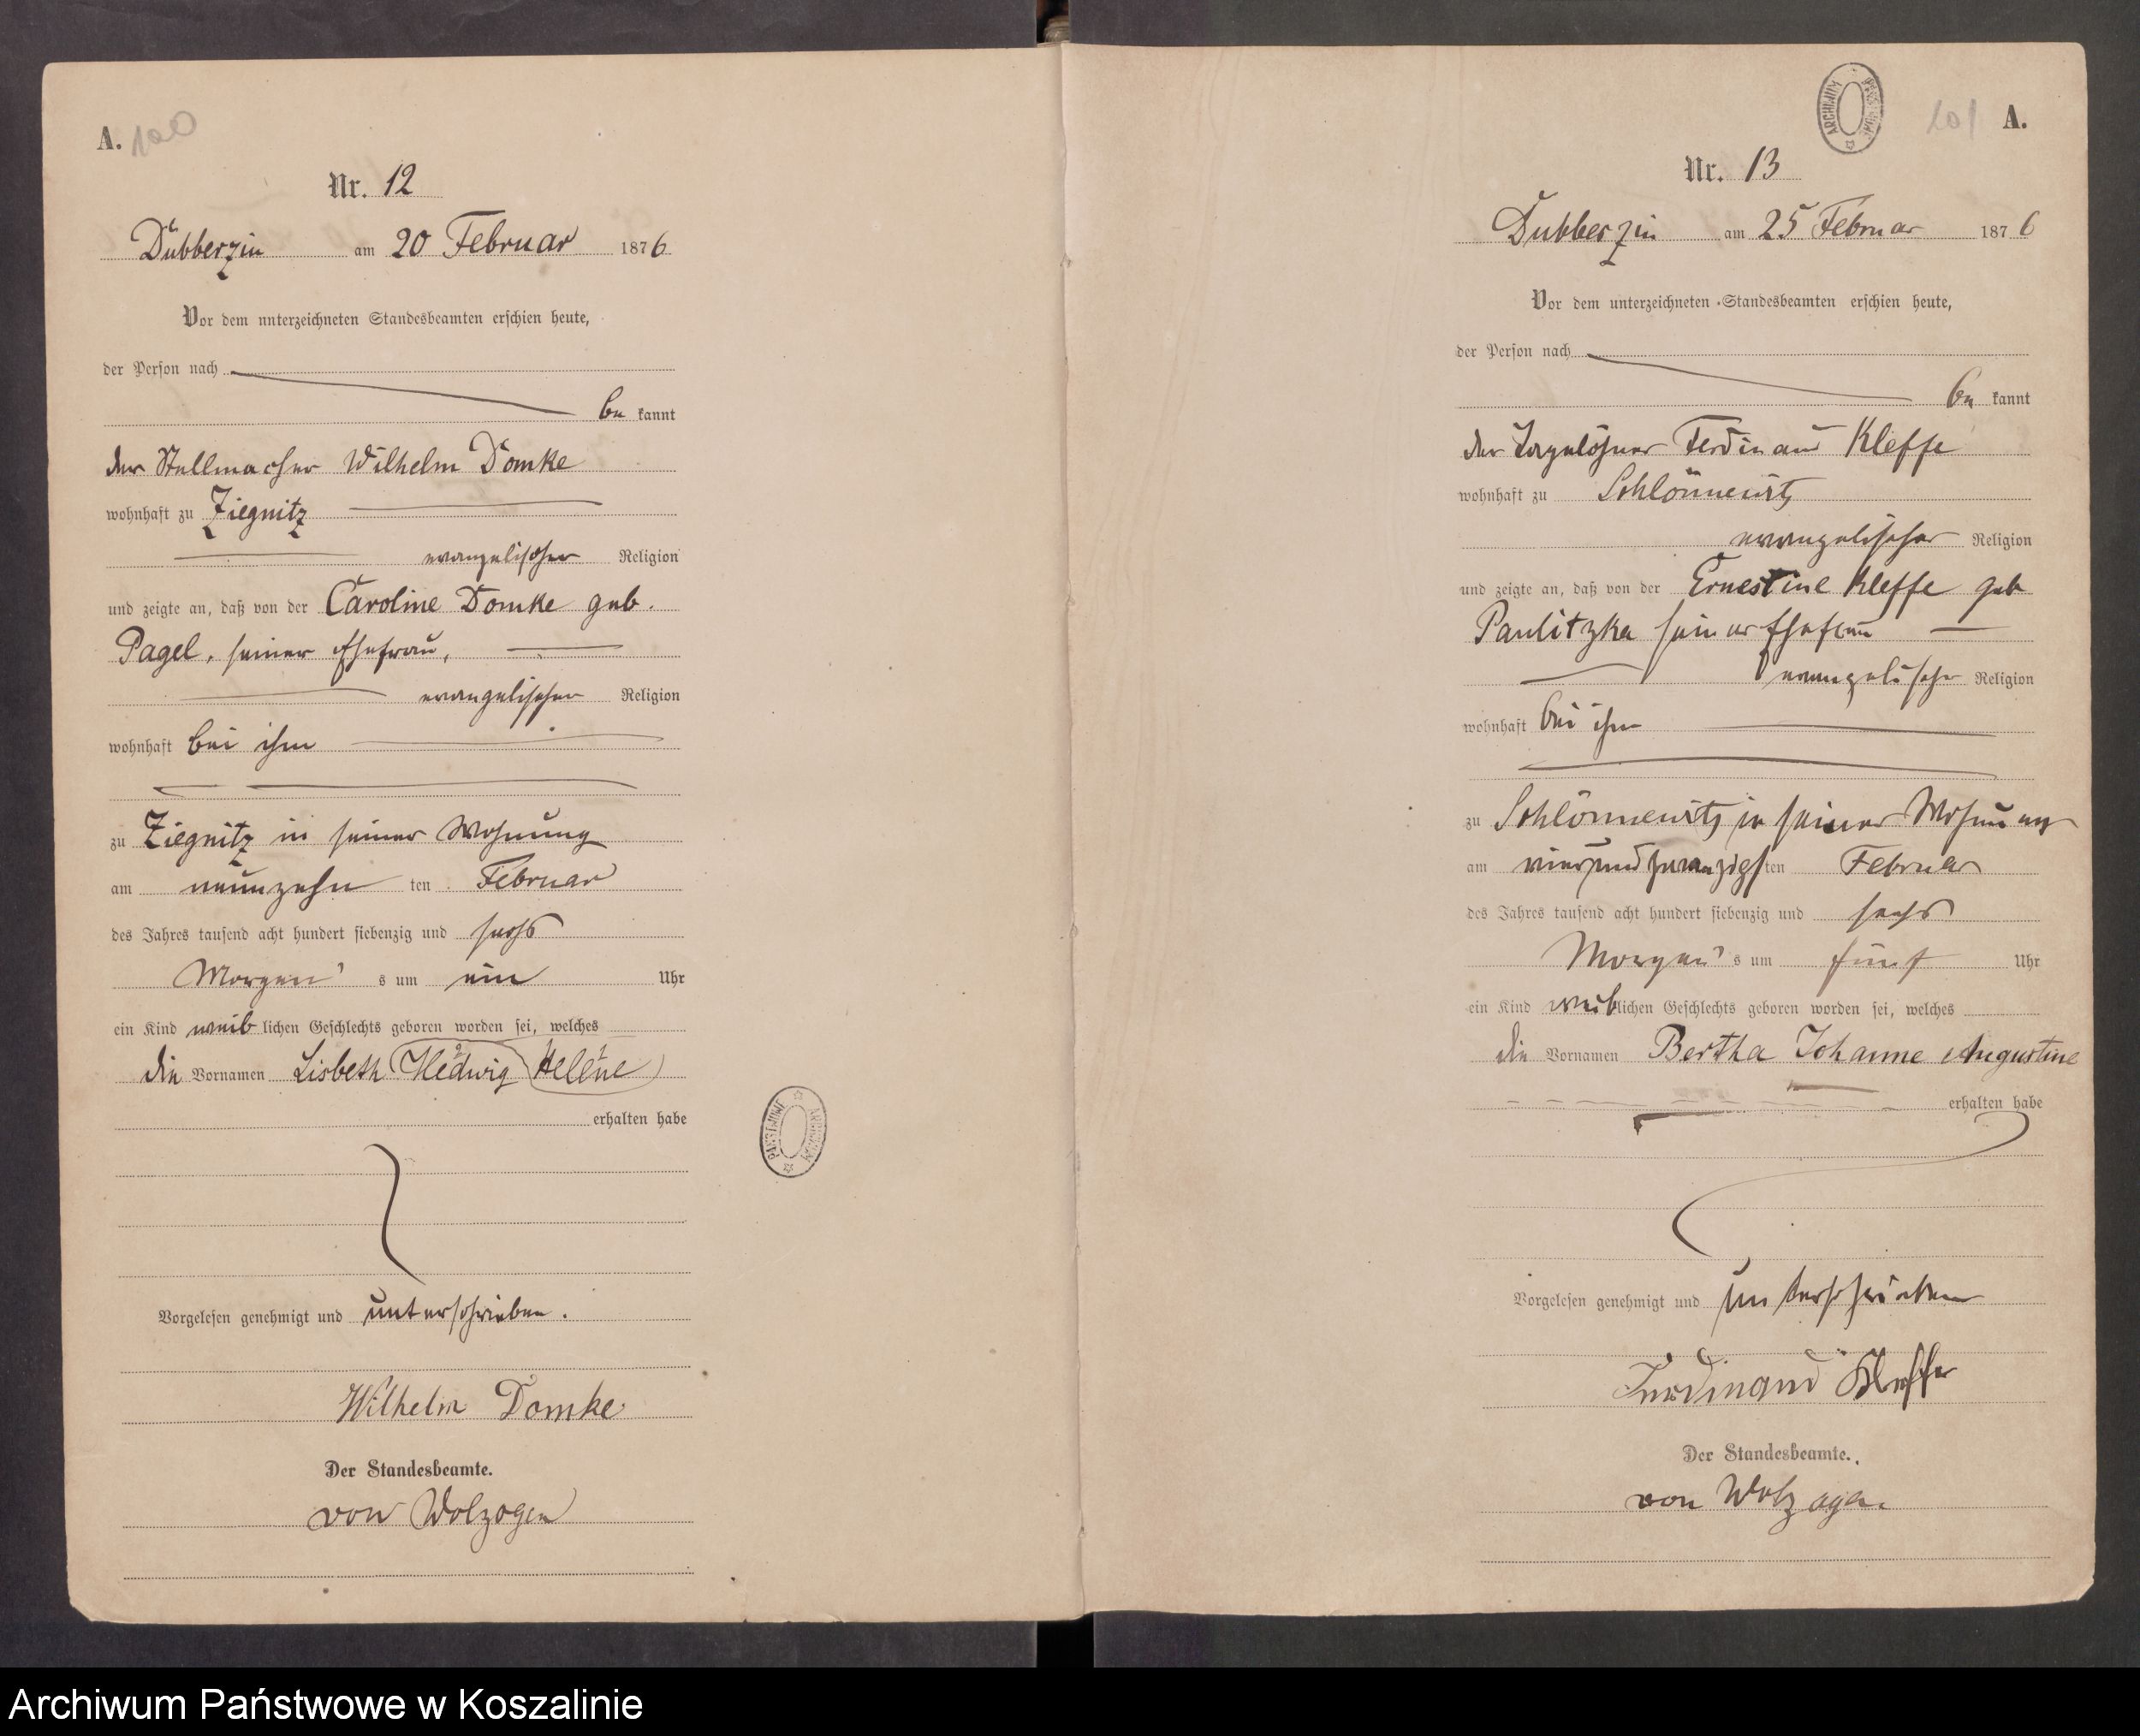 A. 100
Nr. 12
Dubberzin am 20 Februar 1876
Vor dem nnterzeichneten Standesbeamten erschien heute,
der Person nach
be kannt
der Stellmacher Wilhelm Domke
wohnhaft zu Ziegnitz
evangelischer Religion
und zeigte an, daß von der Caroline Domke geb.
Pagel, seiner Ehefrau,
evangelischer Religion
wohnhaft bei ihm
zu Ziegnitz in seiner Wohnung
am neunzehn ten Februar
des Jahres tausend acht hundert siebenzig und sechs
Morgen's um ein Uhr
ein Kind weiblichen Geschlechts geboren worden sei, welches
die Vornamen Lisbeth Hedwig Helene
erhalten habe
Vorgelesen genehmigt und unterschrieben.
Wilhelm Domke
Der Standesbeamte.
von Wolzogen
ARCHIWUM PAŃSTWOWE
ARCHIWUM PAŃSTWOWE
101 A.
Nr. 13
Dubberzin am 25 Februar 1876
Vor dem unterzeichneten Standesbeamten erschien heute,
der Person nach
be kannt
der Tagelöhner Ferdinand Kleffe
wohnhaft zu Schlönnewitz
evangelischer Religion
und zeigte an, daß von der Ernestine Kleffe geb
Paulitzka seiner Ehefrau
evangelischer Religion
wohnhaft bei ihm
zu Schlönnewitz in seiner Wohnung
am vierundzwanzigsten Februar
des Jahres tausend acht hundert siebenzig und sechs
Morgen's um fünf Uhr
ein Kind weiblichen Geschlechts geboren worden sei, welches
die Vornamen Bertha Johanne Augustine
erhalten habe
Vorgelesen genehmigt und unterschrieben
Ferdinand Kleffe
Der Standesbeamte.
von Wolzogen
Archiwum Państwowe w Koszalinie